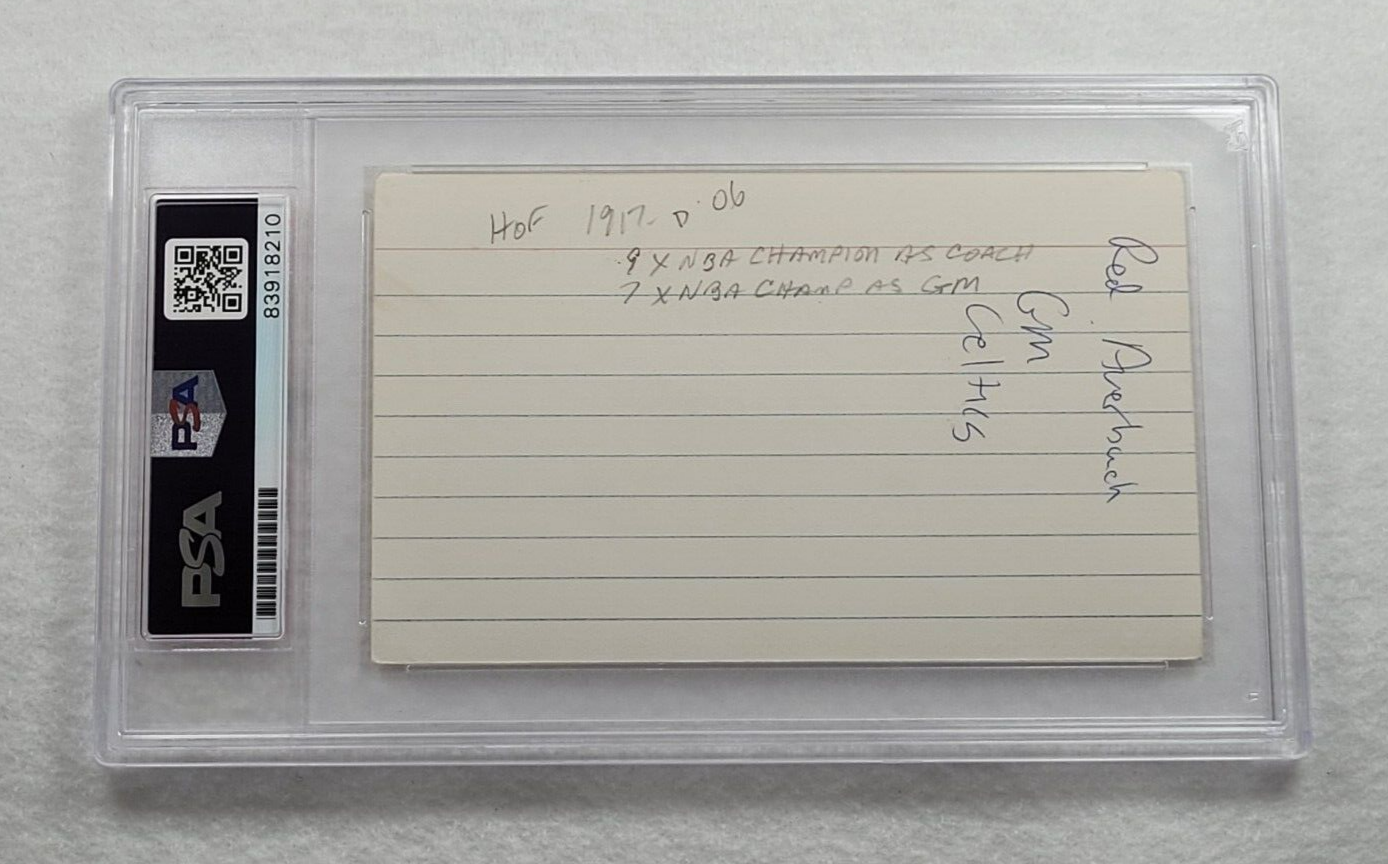 HOF 1917- D 06
9 X NBA CHAMPION AS COACH
7 X NBA CHAMP AS GM
Red Auerbach
GM
Celtics
83918210
PSA
PSA